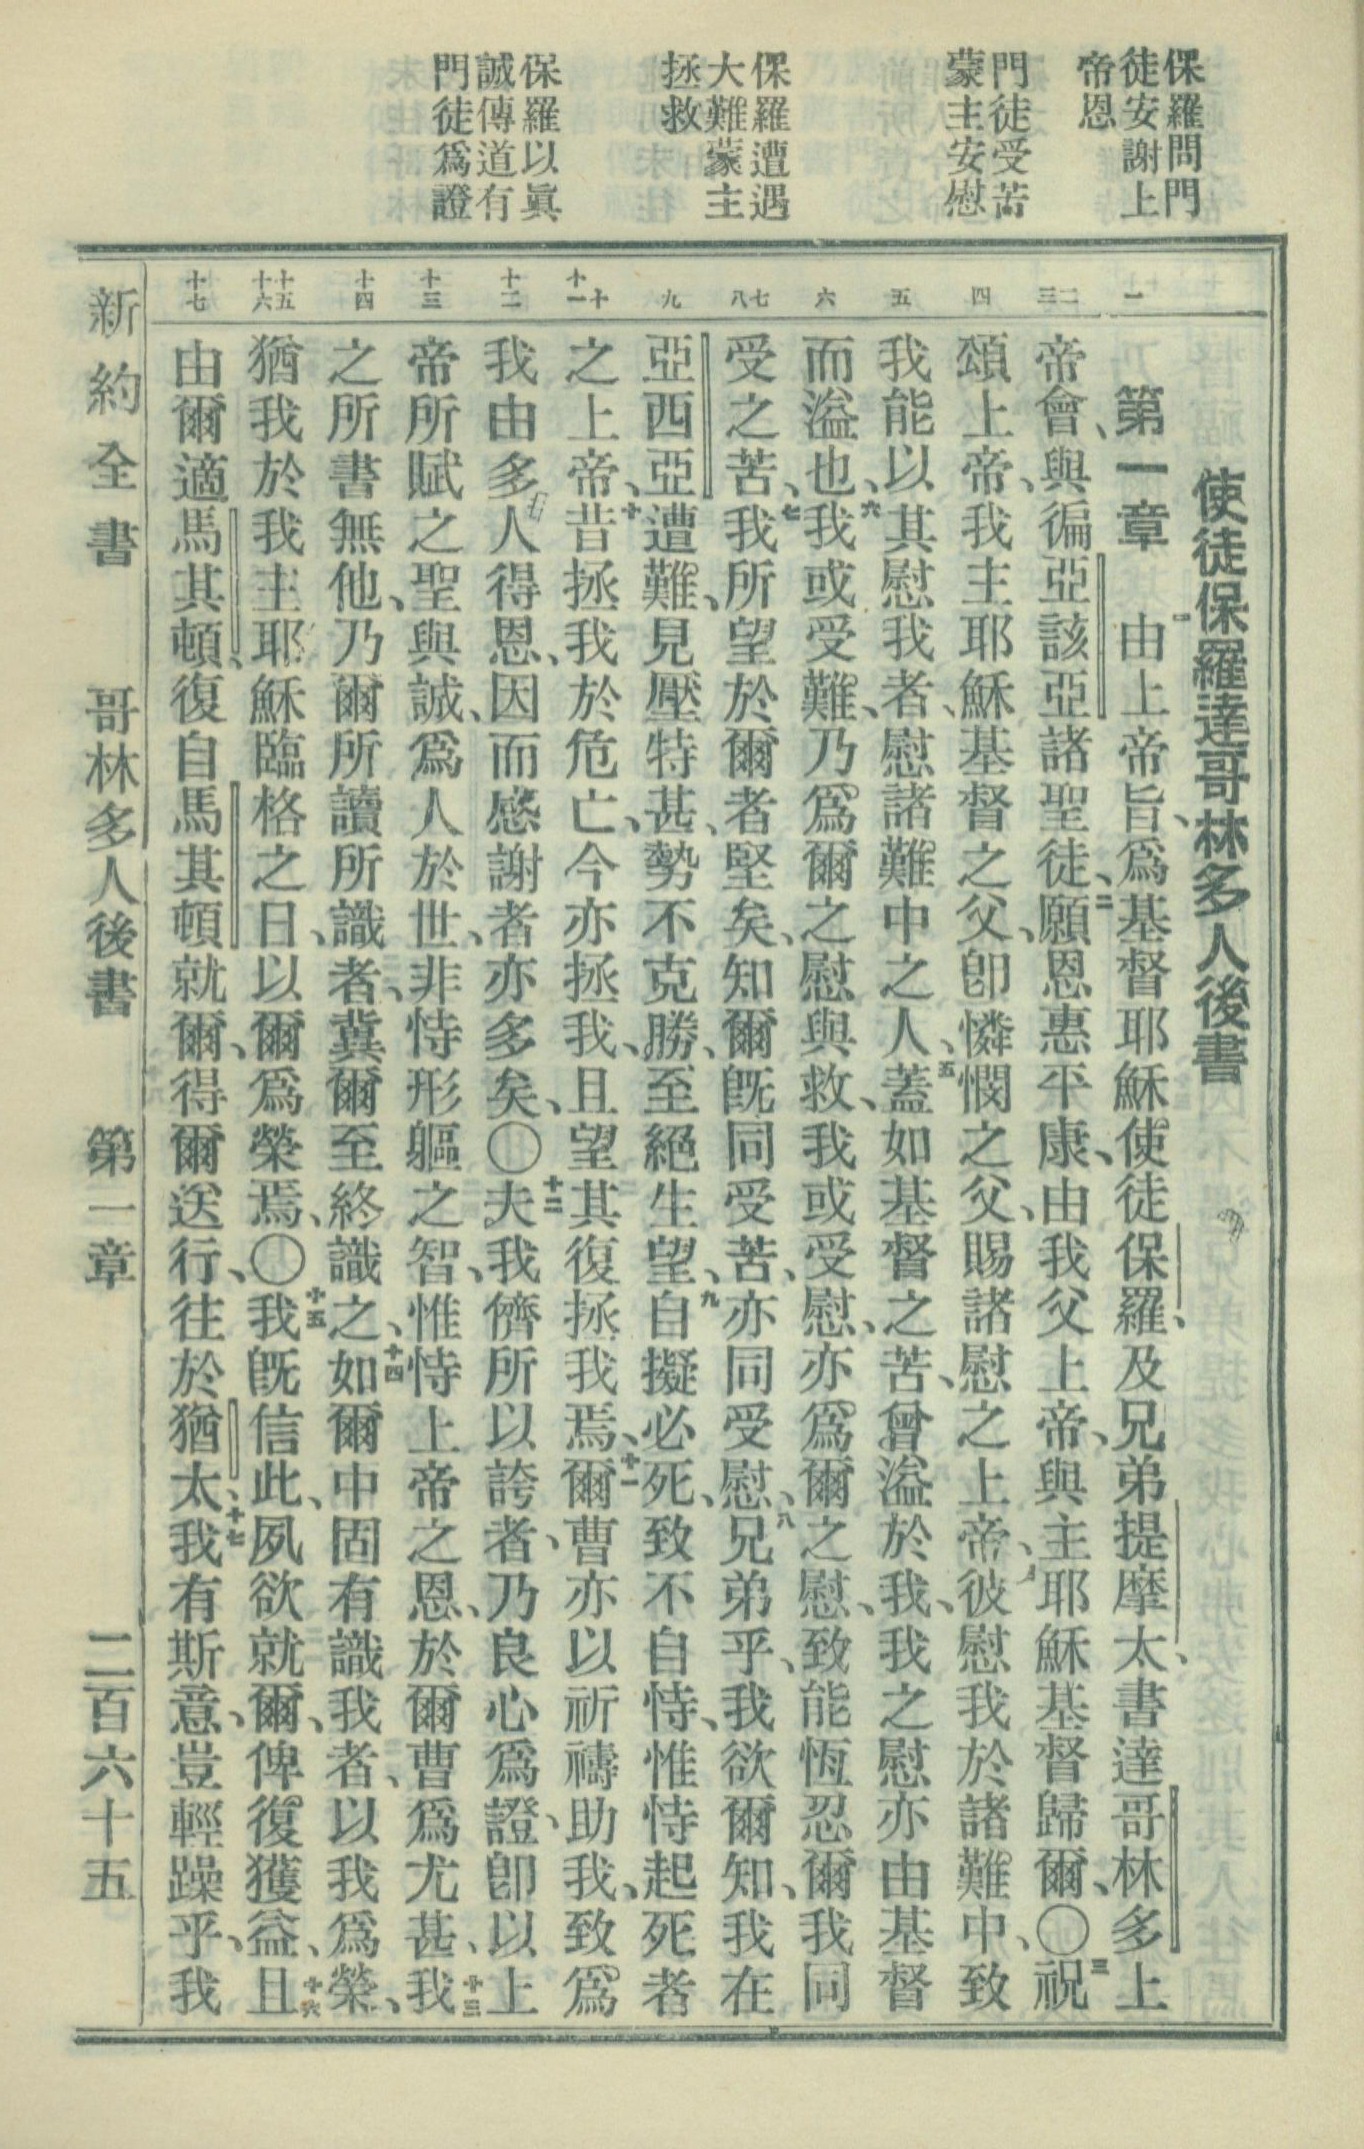 保羅問門
徒安謝上
帝恩
門徒受苦
蒙主安慰
保羅遭遇
大難蒙主
拯救
保羅以眞
誠傳道有
門徒爲證
一
二
三
四
五
六
七
八
九
十
十一
十二
十三
十四
十五
十六
十七
使徒保羅達哥林多人後書
第一章 一由上帝旨、爲基督耶穌使徒保羅、及兄弟提摩太、書達哥林多上
帝會、與徧亞該亞諸聖徒、二願恩惠平康、由我父上帝、與主耶穌基督歸爾、〇三祝
頌上帝、我主耶穌基督之父、卽憐憫之父、賜諸慰之上帝、四彼慰我於諸難中、致
我能以其慰我者、慰諸難中之人、五蓋如基督之苦、曾溢於我、我之慰亦由基督
而溢也、六我或受難、乃爲爾之慰與救、我或受慰、亦爲爾之慰、致能恆忍爾我同
受之苦、七我所望於爾者堅矣、知爾旣同受苦、亦同受慰、八兄弟乎、我欲爾知、我在
亞西亞遭難、見壓特甚、勢不克勝、至絕生望、九自擬必死、致不自恃、惟恃起死者
之上帝、十昔拯我於危亡、今亦拯我、且望其復拯我焉、十一爾曹亦以祈禱助我、致爲
我由多人得恩、因而感謝者亦多矣、〇十二夫我儕所以誇者、乃良心爲證、卽以上
帝所賦之聖與誠、爲人於世、非恃形軀之智、惟恃上帝之恩、於爾曹爲尤甚、十三我
之所書無他、乃爾所讀所識者、冀爾至終識之、十四如爾中固有識我者、以我爲榮、
猶我於我主耶穌臨格之日、以爾爲榮焉、〇十五我旣信此、夙欲就爾、俾復獲益、十六且
由爾適馬其頓、復自馬其頓就爾、得爾送行、往於猶太、十七我有斯意、豈輕躁乎、我
新約全書 哥林多人後書 第一章 二百六十五